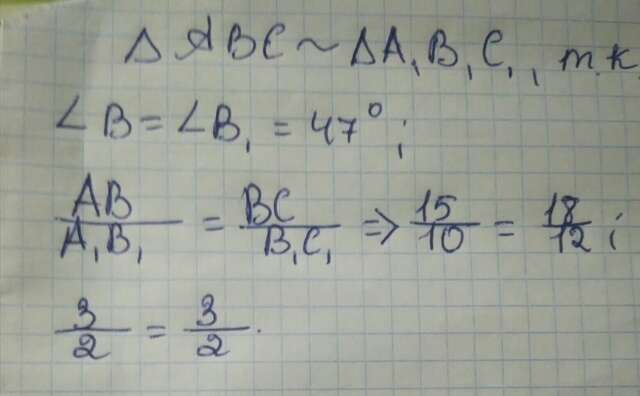 Δ ABC ~ ΔA₁B₁C₁, т.к
∠B = ∠B₁ = 47°;
AB/A₁B₁ = BC/B₁C₁ => 15/10 = 18/12;
3/2 = 3/2.